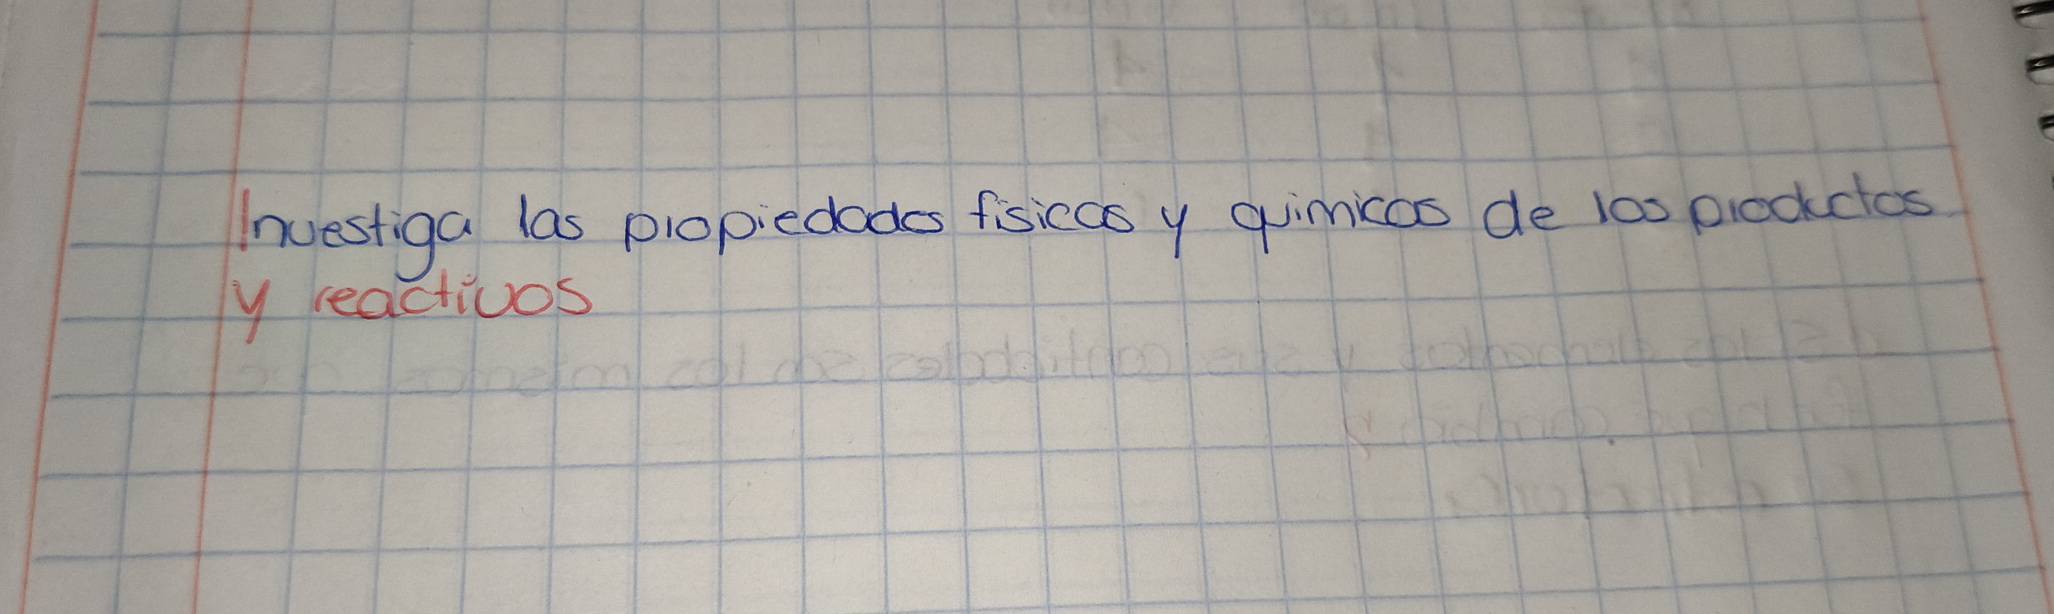 Investiga las propiedades fisicas y quimicas de los productos
y reactivos